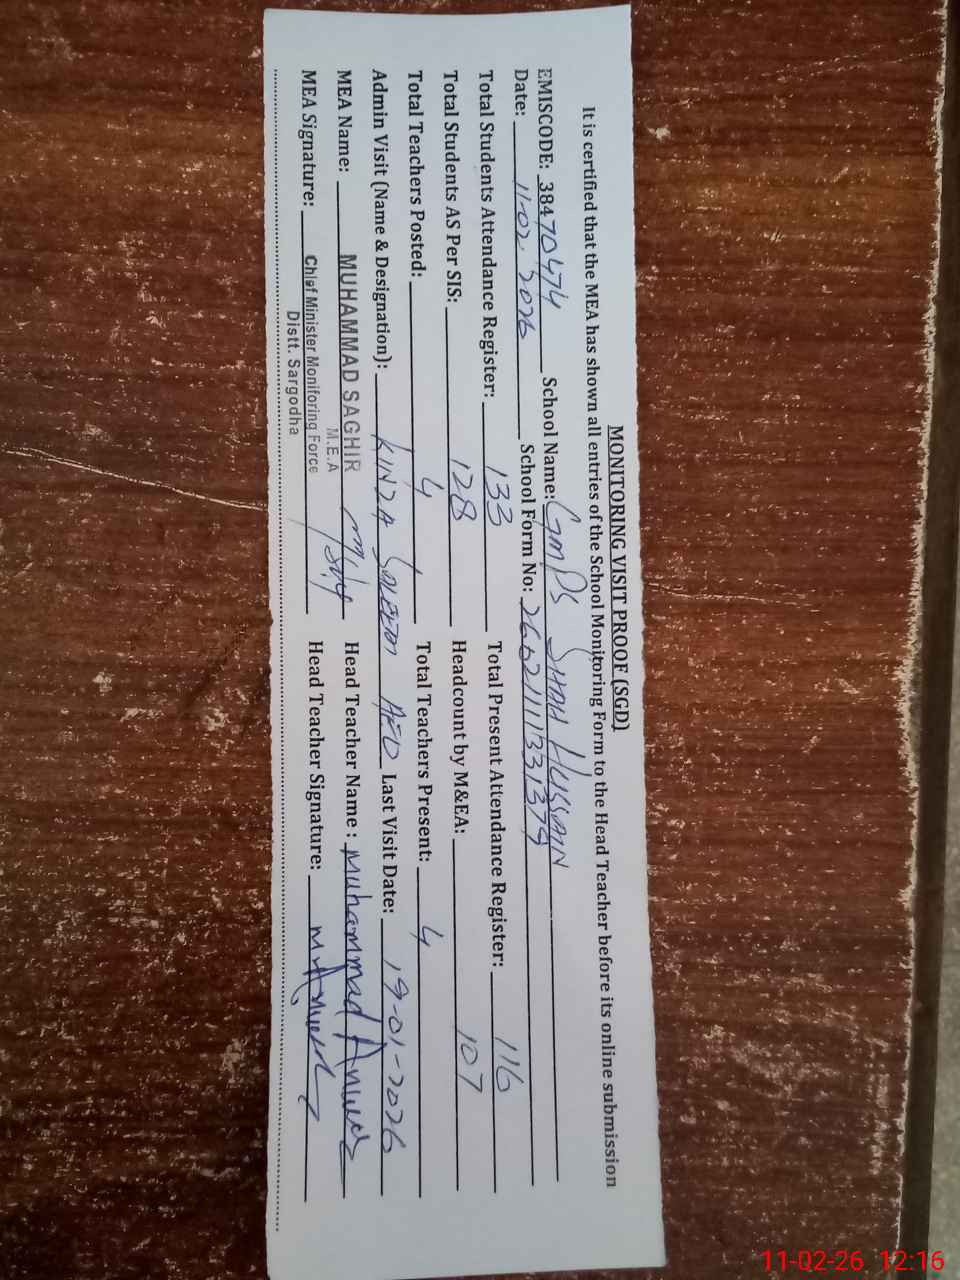 MONITORING VISIT PROOF (SGD)
It is certified that the MEA has shown all entries of the School Monitoring Form to the Head Teacher before its online submission
EMISCODE: 38470474 School Name: GMPS SHAH HUSSAIN
Date: 11-02-2026 School Form No: 26621111331379
Total Students Attendance Register: 133 Total Present Attendance Register: 116
Total Students AS Per SIS: 128 Headcount by M&EA: 107
Total Teachers Posted: 4 Total Teachers Present: 4
Admin Visit (Name & Designation): KINZA SALEEM AEO Last Visit Date: 19-01-2026
MEA Name: MUHAMMAD SAGHIR Head Teacher Name : Muhammad Anwar
M.E.A
MEA Signature: Chief Minister Monitoring Force Head Teacher Signature: M. Anwar
Distt. Sargodha
11-02-26 12:16